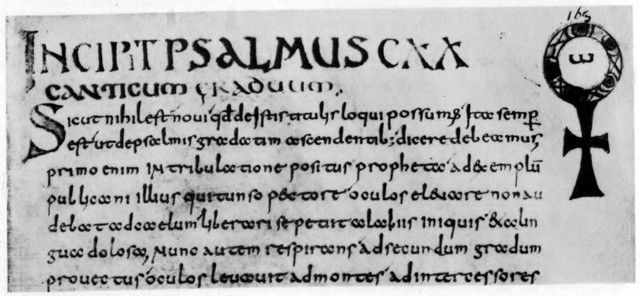 INCIPIT PSALMUS CXX
CANTICUM GRADUUM.
163
ω
Sicut nihil est novi qđ de istis titulis loqui possumus Ita semp
est ut de psalmis gradatim ascendentib; dicere debeamus
primo enim IN tribulatione positus propheta ad exemplū
publicani illius qui tunso pectore oculos elevare non au
debat ad caelum liberari se petit a labiis iniquis & a lin
gua dolosa, Nunc autem respirans ad secundum gradum
provectus oculos levavit ad montes ad intercessores